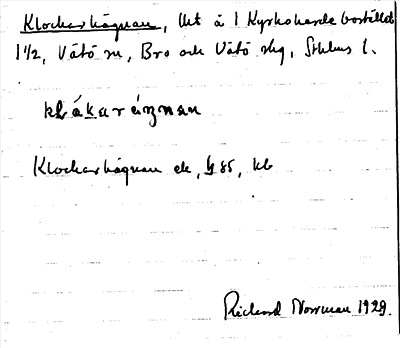 Klockarhägnan, Ut å 1 Kyrkoherdebostället
1 1/2, Vätö sn, Bro och Vätö skg, Sthlms l.
Klockarhägnan ek, kb
Richard Norrman 1929.